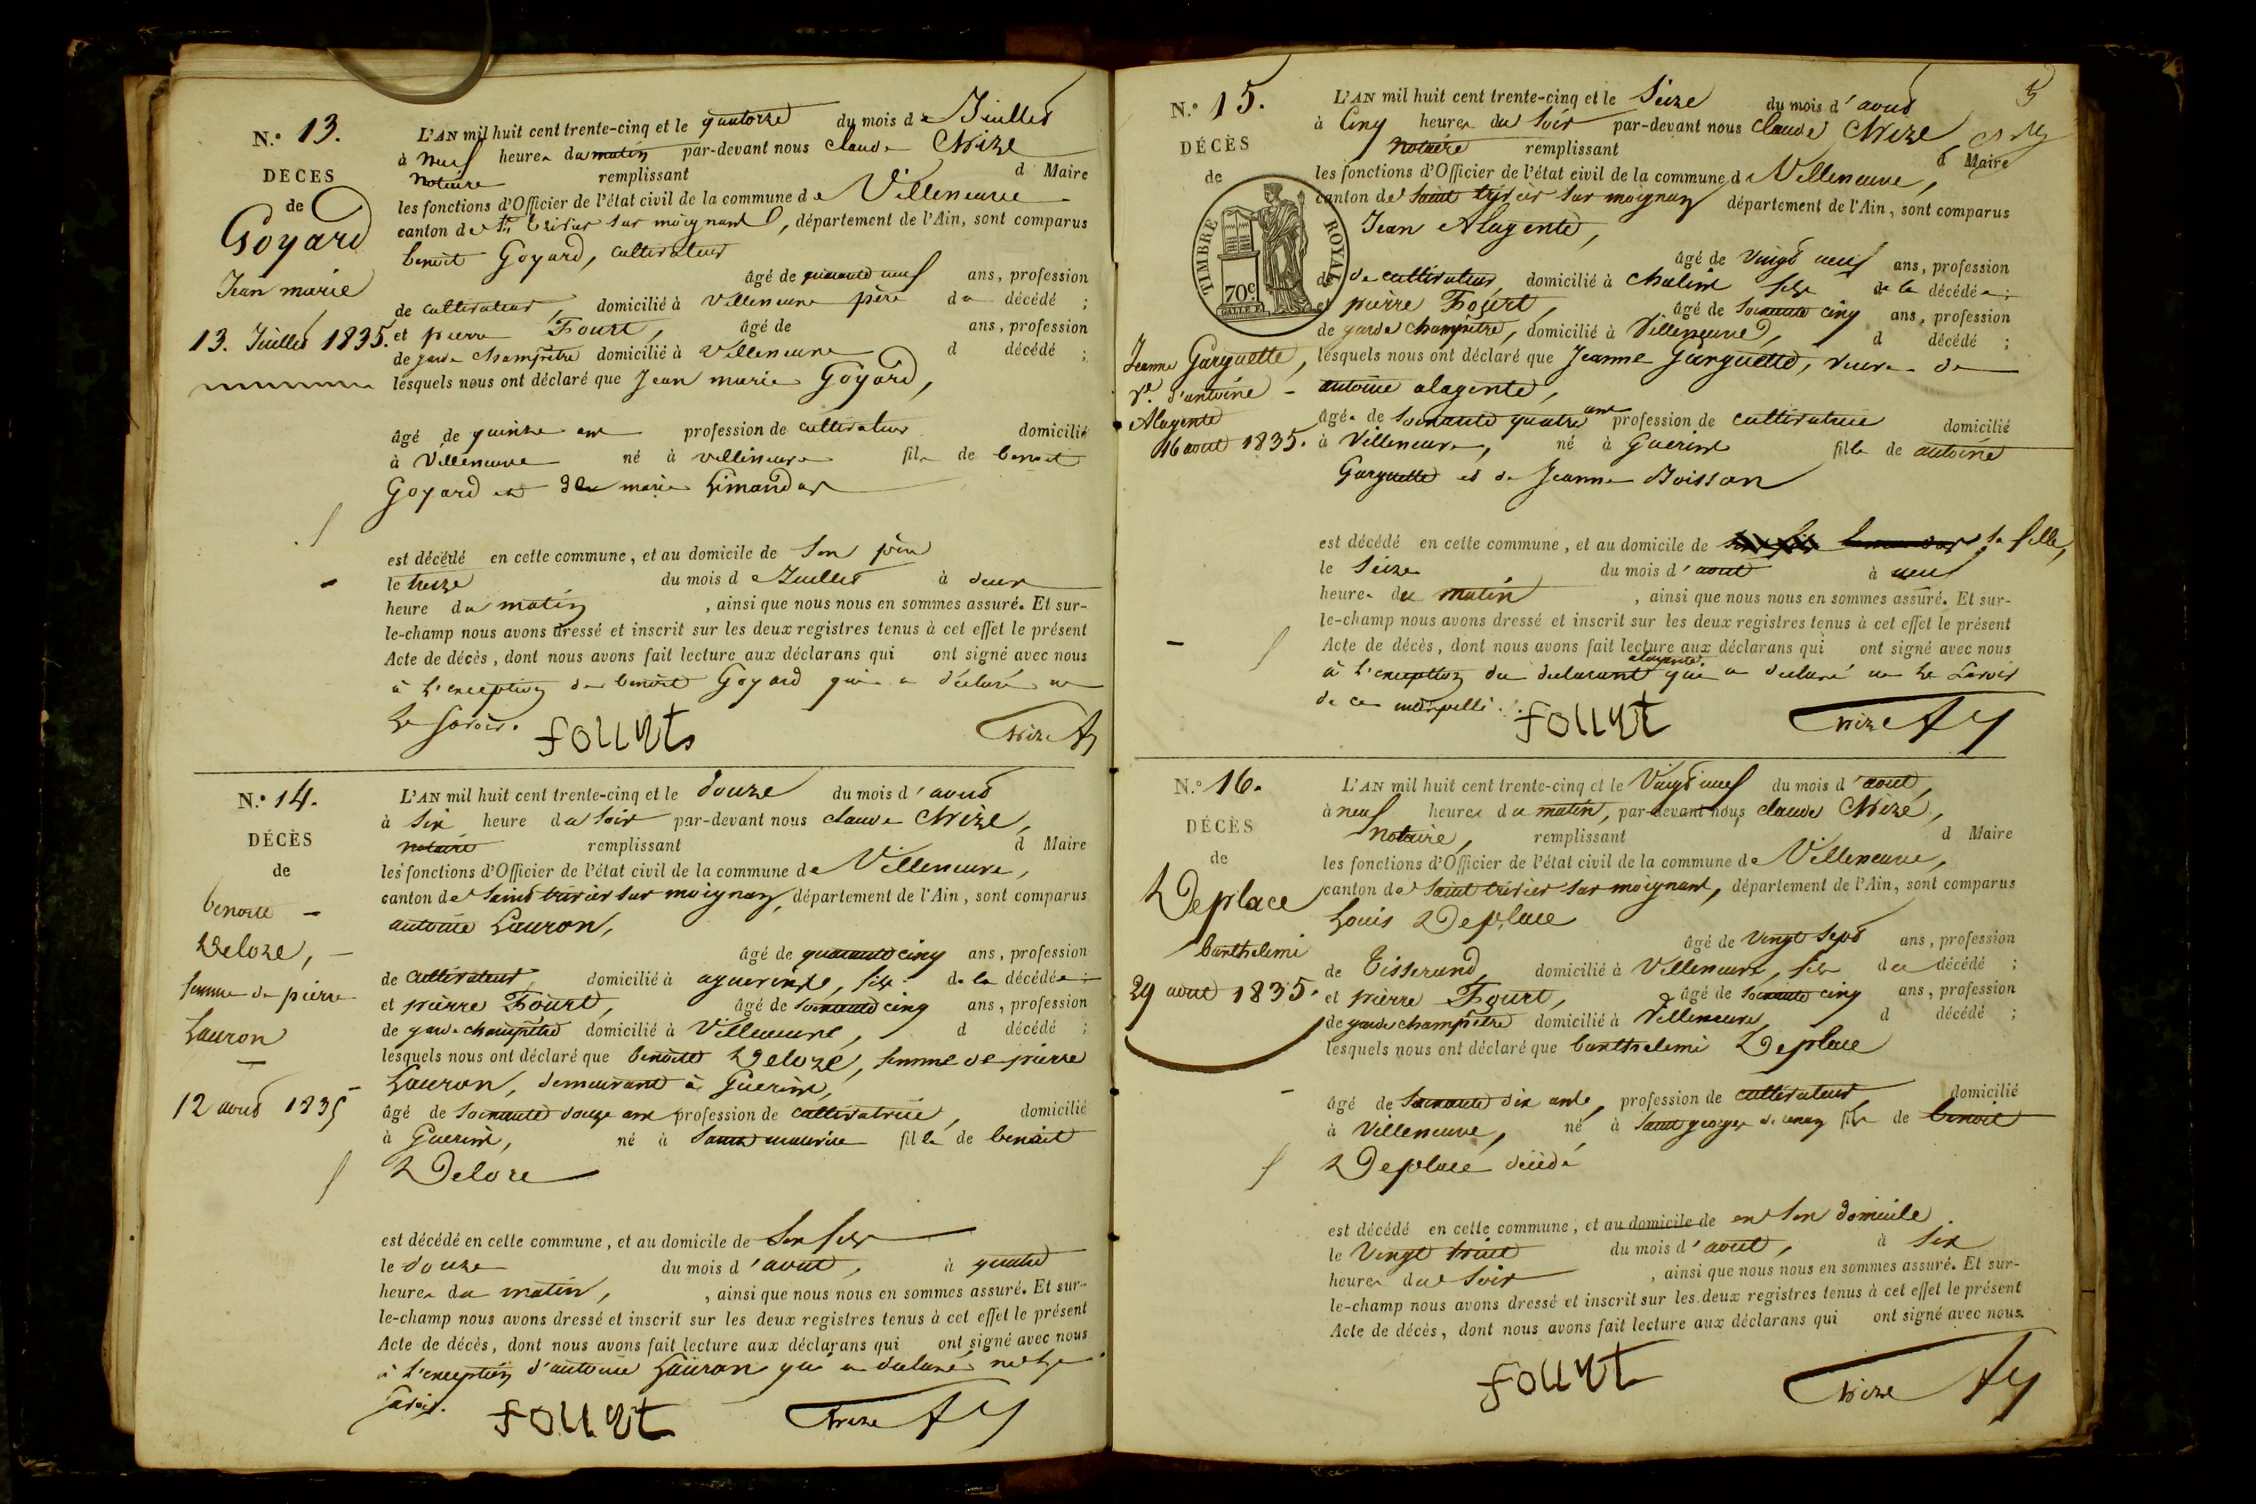 N.° 13.
DÉCÈS
de
Goyard
Jean marie
13. Juillet 1835.
L'AN mil huit cent trente-cinq et le quatorze du mois de Juillet
à neuf heures du matin par-devant nous claude
notaire remplissant d Maire
les fonctions d'Officier de l'état civil de la commune de Villeneuve
canton de St. trivier sur moignand, département de l'Ain, sont comparus
benoit Goyard, cultivateur
âgé de quarante neuf ans, profession
de cultivateur, domicilié à Villeneuve père du décédé ;
et pierre Fourt, âgé de ans, profession
de garde champêtre domicilié à Villeneuve d décédé ;
lesquels nous ont déclaré que Jean marie Goyard,
âgé de quinze ans profession de cultivateur domicilié
à Villeneuve né à villeneuve fils de benoit
Goyard et de marie Limandas
est décédé en cette commune, et au domicile de son père
le treize du mois de Juillet à deux
heure du matin, ainsi que nous nous en sommes assuré. Et sur-
le-champ nous avons dressé et inscrit sur les deux registres tenus à cet effet le présent
Acte de décès, dont nous avons fait lecture aux déclarans qui ont signé avec nous
à l'exception de benoit Goyard qui a déclaré ne
le savoir.
fourt
N.° 14.
DÉCÈS
de
benoite
Deloze,
femme de pierre
Lauron
12 aout 1835
L'AN mil huit cent trente-cinq et le douze du mois d'aout
à six heure du soir par-devant nous claude
notaire remplissant d Maire
les fonctions d'Officier de l'état civil de la commune de Villeneuve,
canton de Saint trivier sur moignan, département de l'Ain, sont comparus
antoine Lauron,
âgé de quarante cinq ans, profession
de cultivateur, domicilié à aguerinde, fils de la décédée ;
et pierre Fourt, âgé de soixante cinq ans, profession
de garde champêtre domicilié à Villeneuve, d décédé ;
lesquels nous ont déclaré que benoite Deloze, femme de pierre
Lauron, demeurant à Guerins,
âgé de soixante douze ans profession de cultivatrice, domicilié
à Guerins, né à fille de benoit
Deloze
est décédé en cette commune, et au domicile de son fils
le douze du mois d'aout, à quatre
heures du matin, ainsi que nous nous en sommes assuré. Et sur-
le-champ nous avons dressé et inscrit sur les deux registres tenus à cet effet le présent
Acte de décès, dont nous avons fait lecture aux déclarans qui ont signé avec nous
à l'exception d'antoine Lauron qui a déclaré ne le
savoir.
fourt
5
N.° 15.
DÉCÈS
de
TIMBRE ROYAL
70c
Jeanne Garguette,
Ve. d'antoine
Alagente
16 aout 1835.
L'AN mil huit cent trente-cinq et le Seize du mois d'aout
à Cinq heures du soir par-devant nous claude
notaire remplissant d Maire
les fonctions d'Officier de l'état civil de la commune de Villeneuve,
canton de Saint trivier sur moignan département de l'Ain, sont comparus
Jean Alagente,
âgé de vingt neuf ans, profession
de cultivateur, domicilié à fils de la décédée ;
et pierre Fourt, âgé de soixante cinq ans, profession
de garde champêtre, domicilié à Villeneuve, d décédé ;
lesquels nous ont déclaré que Jeanne Garguette, veuve de
antoine alagente,
âgée de soixante quatre ans profession de cultivatrice domicilié
à Villeneuve, né à Guerins fille de antoine
Garguette et de Jeanne Boisson
est décédé en cette commune, et au domicile de sa fille,
le Seize du mois d'aout à neuf
heures du matin, ainsi que nous nous en sommes assuré. Et sur-
le-champ nous avons dressé et inscrit sur les deux registres tenus à cet effet le présent
Acte de décès, dont nous avons fait lecture aux déclarans qui ont signé avec nous
à l'exception du déclarant alagente qui a déclaré ne le savoir
de ce interpellé.
fourt
N.° 16.
DÉCÈS
de
Deplace
barthelemi
29 aout 1835.
L'AN mil huit cent trente-cinq et le Vingt neuf du mois d'aout,
à neuf heures du matin, par-devant nous claude
notaire, remplissant d Maire
les fonctions d'Officier de l'état civil de la commune de Villeneuve,
canton de Saint trivier sur moignand, département de l'Ain, sont comparus
Louis Deplace
âgé de vingt sept ans, profession
de Tisserand, domicilié à Villeneuve, fils du décédé ;
et pierre Fourt, âgé de soixante cinq ans, profession
de garde champêtre domicilié à Villeneuve d décédé ;
lesquels nous ont déclaré que barthelemi Deplace
âgé de soixante dix ans, profession de cultivateur, domicilié
à Villeneuve, né à Saint george de renon fils de benoit
Deplace décédé
est décédé en cette commune, et au domicile de en son domicile
le Vingt huit du mois d'aout, à six
heures du soir, ainsi que nous nous en sommes assuré. Et sur-
le-champ nous avons dressé et inscrit sur les deux registres tenus à cet effet le présent
Acte de décès, dont nous avons fait lecture aux déclarans qui ont signé avec nous.
fourt